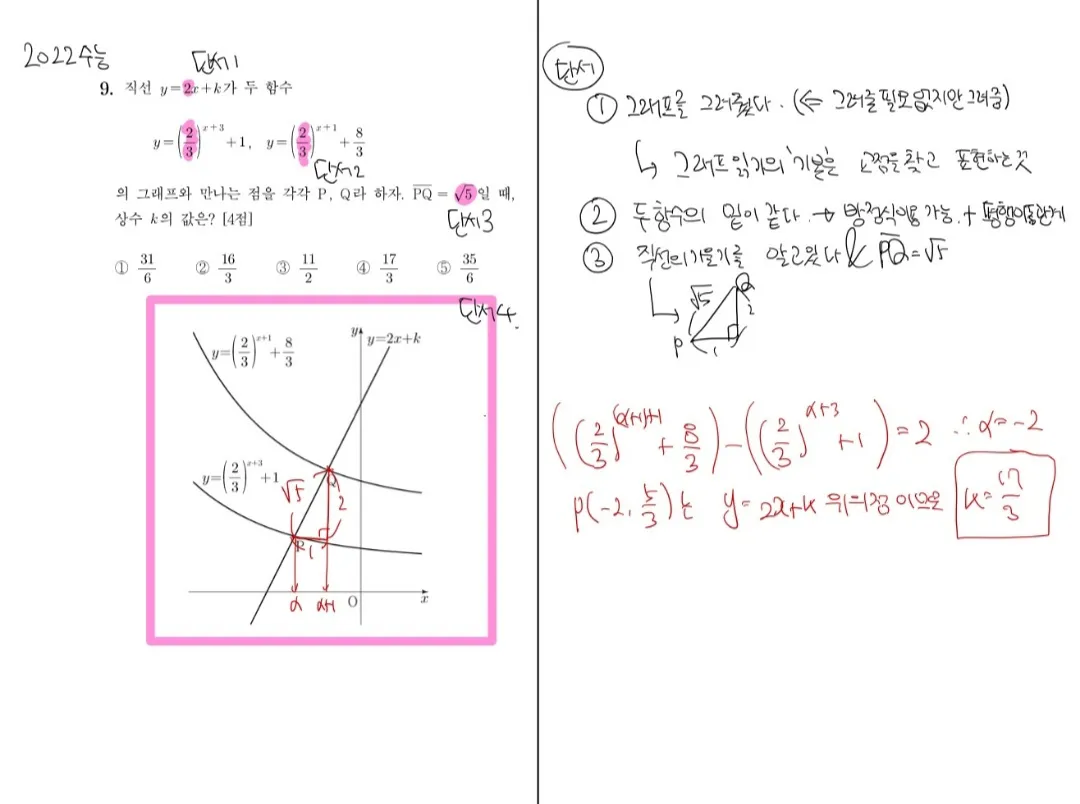 2022수능
단서1
9. 직선 y=2x+k가 두 함수
y=(2/3)^{x+3}+1, y=(2/3)^{x+1}+8/3
단서2
의 그래프와 만나는 점을 각각 P, Q라 하자. PQ=√5일 때,
상수 k의 값은? [4점]
단서3
① 31/6 ② 16/3 ③ 11/2 ④ 17/3 ⑤ 35/6
단서4.
y
y=2x+k
y=(2/3)^{x+1}+8/3
y=(2/3)^{x+3}+1
Q
√5
2
P
1
α
α+1
O
x
단서
① 그래프를 그려줬다. (⇐ 그려줄 필요 없지만 그려줌)
↳ 그래프 읽기의 '기본'은 교점을 찾고 표현하는 것
② 두 함수의 밑이 같다. → 방정식 이용 가능. + 평행이동관계
③ 직선의 기울기를 알고있다 & PQ=√5
Q
√5
2
P
1
((2/3)^{(α+1)+1}+8/3)-((2/3)^{α+3}+1)=2 ∴α=-2
P(-2, 5/3)는 y=2x+k 위의 점이므로 k=17/3